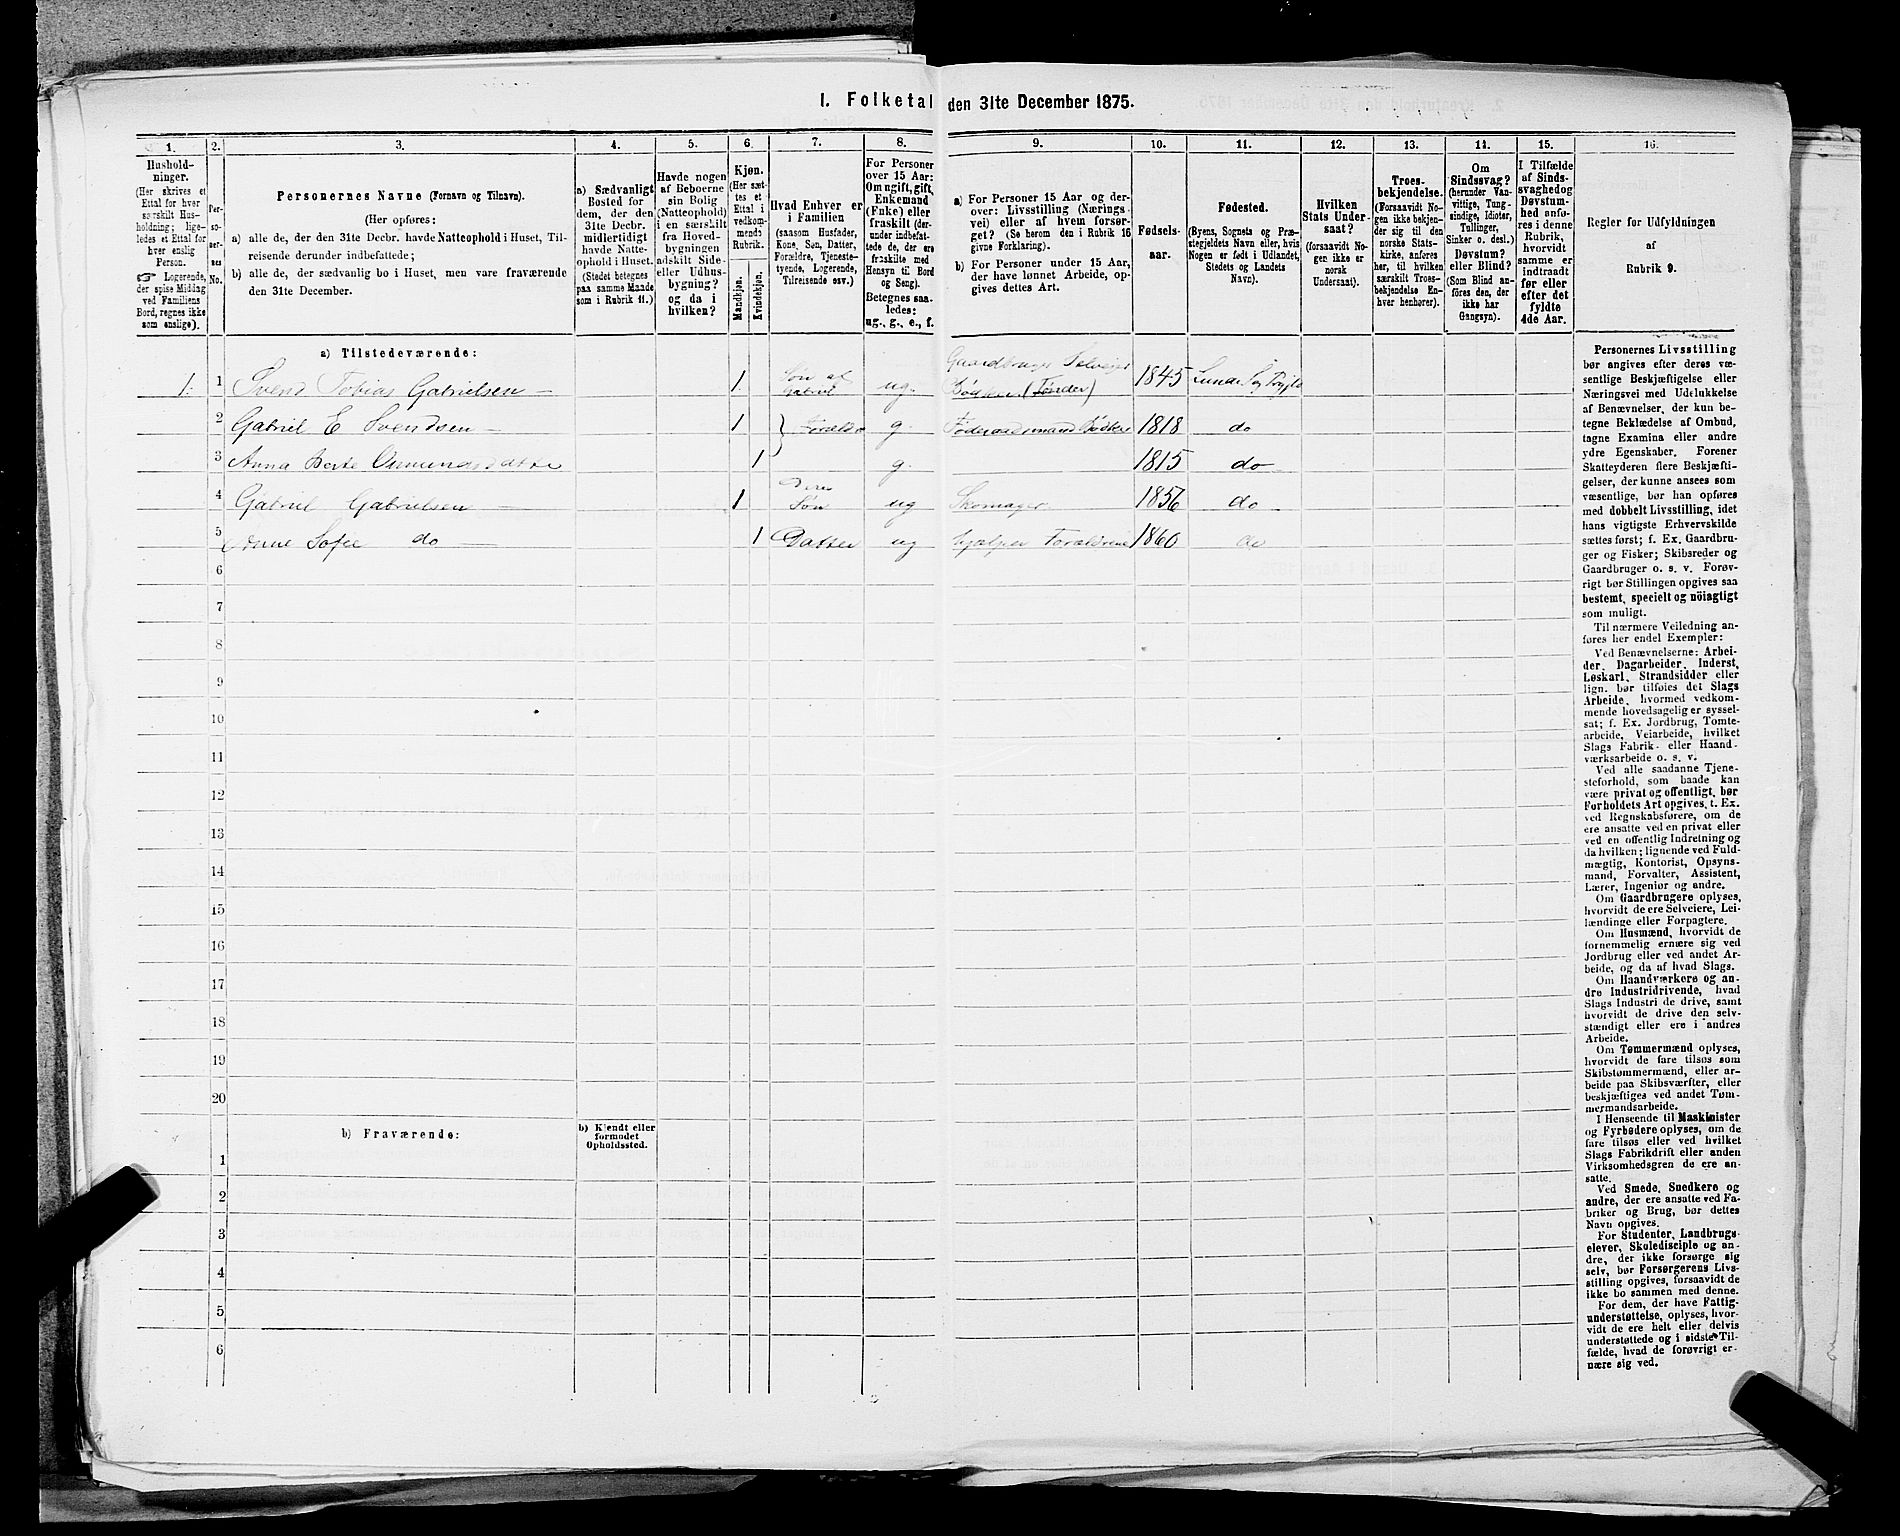 1. Folketal den 31te December 1875.
1.
Hushold-
ninger.
(Her skrives et
Ettal for hver
særskilt Hus-
holdning; lige-
ledes et Ettal for
hver enslig
Person.
☞ Logerende,
der spise Middag
ved Familiens
Bord, regnes ikke
som enslige).
2.
Per-
so-
ner-
nes
No.
3.
Personernes Navne (Fornavn og Tilnavn).
(Her opføres:
a) alle de, der den 31te Decbr. havde Natteophold i Huset, Til-
reisende derunder indbefattede;
b) alle de, der sædvanlig bo i Huset, men vare fraværende
den 31te December.
4.
a) Sædvanligt
Bosted for
dem, der den
31te Decbr.
midlertidigt
havde Natte-
ophold i Huset.
(Stedet betegnes
paa samme Maade
som i Rubrik 11.)
5.
Havde nogen
af Beboerne
sin Bolig
(Natteophold)
i en særskilt
fra Hoved-
bygningen
adskilt Side-
eller Udhus-
bygning?
og da i
hvilken?
6.
Kjøn.
(Her sæt-
tes et
Ettal i
vedkom-
mende
Rubrik.
Mandkjøn.
Kvindekjøn.
7.
Hvad Enhver er
i Familien
(saasom Husfader,
Kone, Søn, Datter,
Forældre, Tjeneste-
tyende, Logerende,
Tilreisende osv.)
8.
For Personer
over 15 Aar:
Om ugift, gift,
Enkemand
(Enke) eller
fraskilt (der-
under indbefat-
tede de, der ere
fraskilte med
Hensyn til Bord
og Seng).
Betegnes saa-
ledes:
ug., g., e., f.
9.
a) For Personer 15 Aar og der-
over: Livsstilling (Nærings-
vei) eller af hvem forsør-
get? (Se herom den i Rubrik 16
givne Forklaring).
b) For Personer under 15 Aar,
der have lønnet Arbeide, op-
gives dettes Art.
10.
Fødsels-
aar.
11.
Fødested.
(Byens, Sognets og Præ-
stegjeldets Navn eller, hvis
Nogen er født i Udlandet,
Stedets og Landets
Navn).
12.
Hvilken
Stats Under-
saat?
(forsaavidt No-
gen ikke er
norsk
Undersaat).
13.
Troes-
bekjendelse.
(Forsaavidt No-
gen ikke bekjen-
der sig til den
norske Stats-
kirke, anføres
her, til hvilken
særskilt Troes-
bekjendelse En-
hver henhører).
14.
Om
Sindssvag?
(herunder Van-
vittige, Tung-
sindige, Idioter,
Tullinger,
Sinker o. desl.)
Døvstum?
eller Blind?
(Som Blind an-
føres den, der
ikke har
Gangsyn).
15.
I Tilfælde
af Sinds-
svaghed og
Døvstum-
hed anfø-
res i denne
Rubrik,
hvorvidt
samme er
indtraadt
før eller
efter det
fyldte
4de Aar.
16.
Regler for Udfyldningen
af
Rubrik 9.
a) Tilstedeværende:
1. 1 Svend Tobias Gabrielsen 1 Søn af Gabriel ug. Gaardbruger Selveier Bødker (Tønder) 1845 Lunde Sog
2 Gabriel E Svendsen 1 Forældre g. Føderaadsmand Bødker 1818 do
3 Anna Berte Osmundsdatter 1 g. 1815 do
4 Gabriel Gabrielsen 1 Deres Søn ug Skomager 1856 do
5 Anne Sofie do 1 Datter ug hjælper Forældrene 1860 do
6
7
8
9
10
11
12
13
14
15
16
17
18
19
20
b) Fraværende:
b) Kjendt eller
formodet
Opholdssted.
1
2
3
4
5
6
Personernes Livsstilling
bør angives efter deres væ-
sentlige Beskjæftigelse eller
Næringsvei med Udelukkelse
af Benævnelser, der kun be-
tegne Beklædelse af Ombud,
tagne Examina eller andre
ydre Egenskaber. Forener
Skatteyderen flere Beskjæfti-
gelser, der kunne ansees som
væsentlige, bør han opføres
med dobbelt Livsstilling, idet
hans vigtigste Erhvervskilde
sættes først; f. Ex. Gaardbru-
ger og Fisker; Skibsreder og
Gaardbruger o. s. v. Forøv-
rigt bør Stillingen opgives saa
bestemt, specielt og nöiagtigt
som muligt.
Til nærmere Veiledning an-
føres her endel Exempler:
Ved Benævnelserne: Arbei-
der, Dagarbeider, Inderst,
Løskarl, Strandsidder eller
lign. bør tilføies det Slags
Arbeide, hvormed vedkom-
mende hovedsagelig er syssel-
sat; f. Ex. Jordbrug, Tomte-
arbeide, Veiarbeide, hvilket
Slags Fabrik- eller Haand-
værksarbeide o. s. v.
Ved alle saadanne Tjene-
steforhold, som baade kan
være privat og offentligt, bør
Forholdets Art opgives, t. Ex.
ved Regnskabsførere, om de
ere ansatte ved en privat eller
ved en offentlig Indretning og
da hvilken; lignende ved Fuld-
mægtig, Kontorist, Opsyns-
mand, Forvalter, Assistent,
Lærer, Ingeniør og andre.
Om Gaardbrugere oplyses,
hvorvidt de ere Selveiere, Lei-
lændinge eller Forpagtere.
Om Husmænd, hvorvidt de
fornemmelig ernære sig ved
Jordbrug eller ved andet Ar-
beide, og da af hvad Slags.
Om Haandværkere og an-
dre Industridrivende, hvad
Slags Industri de drive, samt
hvorvidt de drive den selv-
stændigt eller ere i andres
Arbeide.
Om Tømmermænd oplyses,
hvorvidt de fare tilsøs som
Skibstømmermænd, eller ar-
beide paa Skibsværfter, eller
beskjæftiges ved andet Tøm-
mermandsarbeide.
I Henseende til Maskinister
og Fyrbødere oplyses, om de
fare tilsøs eller ved hvilket
Slags Fabrikdrift eller anden
Virksomhedsgren de ere an-
satte.
Ved Smede, Snedkere og
andre, der ere ansatte ved Fa-
briker og Brug, bør dettes
Navn opgives.
For Studenter, Landbrugs-
elever, Skoledisciple og an-
dre, der ikke forsørge sig
selv, bør Forsørgerens Livs-
stilling opgives, forsaavidt de
ikke bo sammen med denne.
For dem, der have Fattig-
understøttelse, oplyses, hvor-
vidt de ere helt eller delvis
understøttede og i sidste Til-
fælde, hvad de forøvrigt er-
nære sig ved.